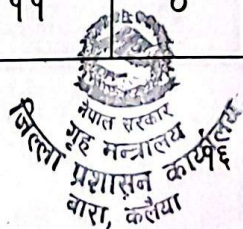 ११ ०
नेपाल सरकार
गृह मन्त्रालय
जिल्ला प्रशासन कार्यालय
१६
बारा, कलैया